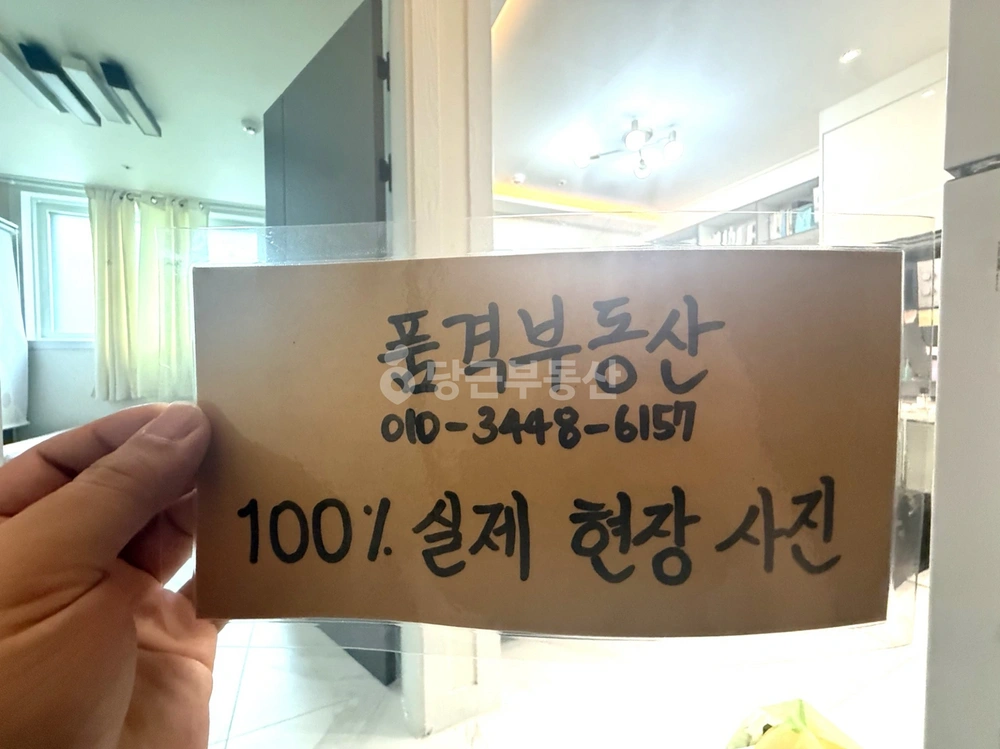 품격부동산
당근부동산
010-3448-6157
100% 실제 현장 사진